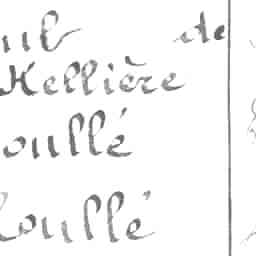 ub de
Kellière
oullé
oullé